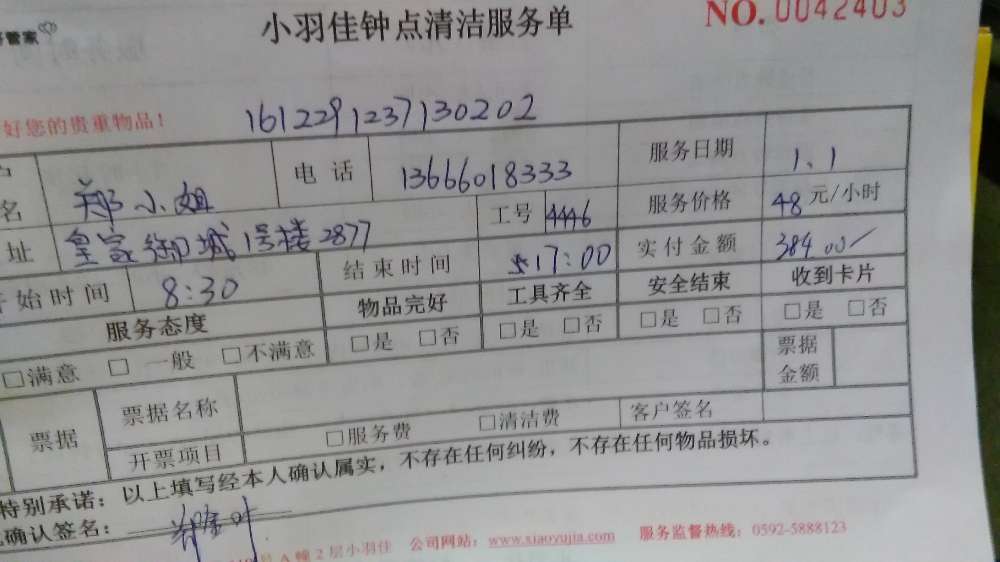 管家
小羽佳钟点清洁服务单
NO. 0042403
好您的贵重物品!
1612291237130202
名 郑小姐 电话 13666018333 服务日期 1.1
址 皇家御城1号楼2877 工号 4446 服务价格 48元/小时
开始时间 8:30 结束时间 17:00 实付金额 384.00
服务态度 物品完好 工具齐全 安全结束 收到卡片
□满意 □一般 □不满意 □是 □否 □是 □否 □是 □否 □是 □否
票据 票据名称 票据金额
开票项目 □服务费 □清洁费 客户签名
特别承诺:以上填写经本人确认属实,不存在任何纠纷,不存在任何物品损坏。
确认签名:
号A幢2层小羽佳 公司网站:www.xiaoyujia.com 服务监督热线:0592-5888123